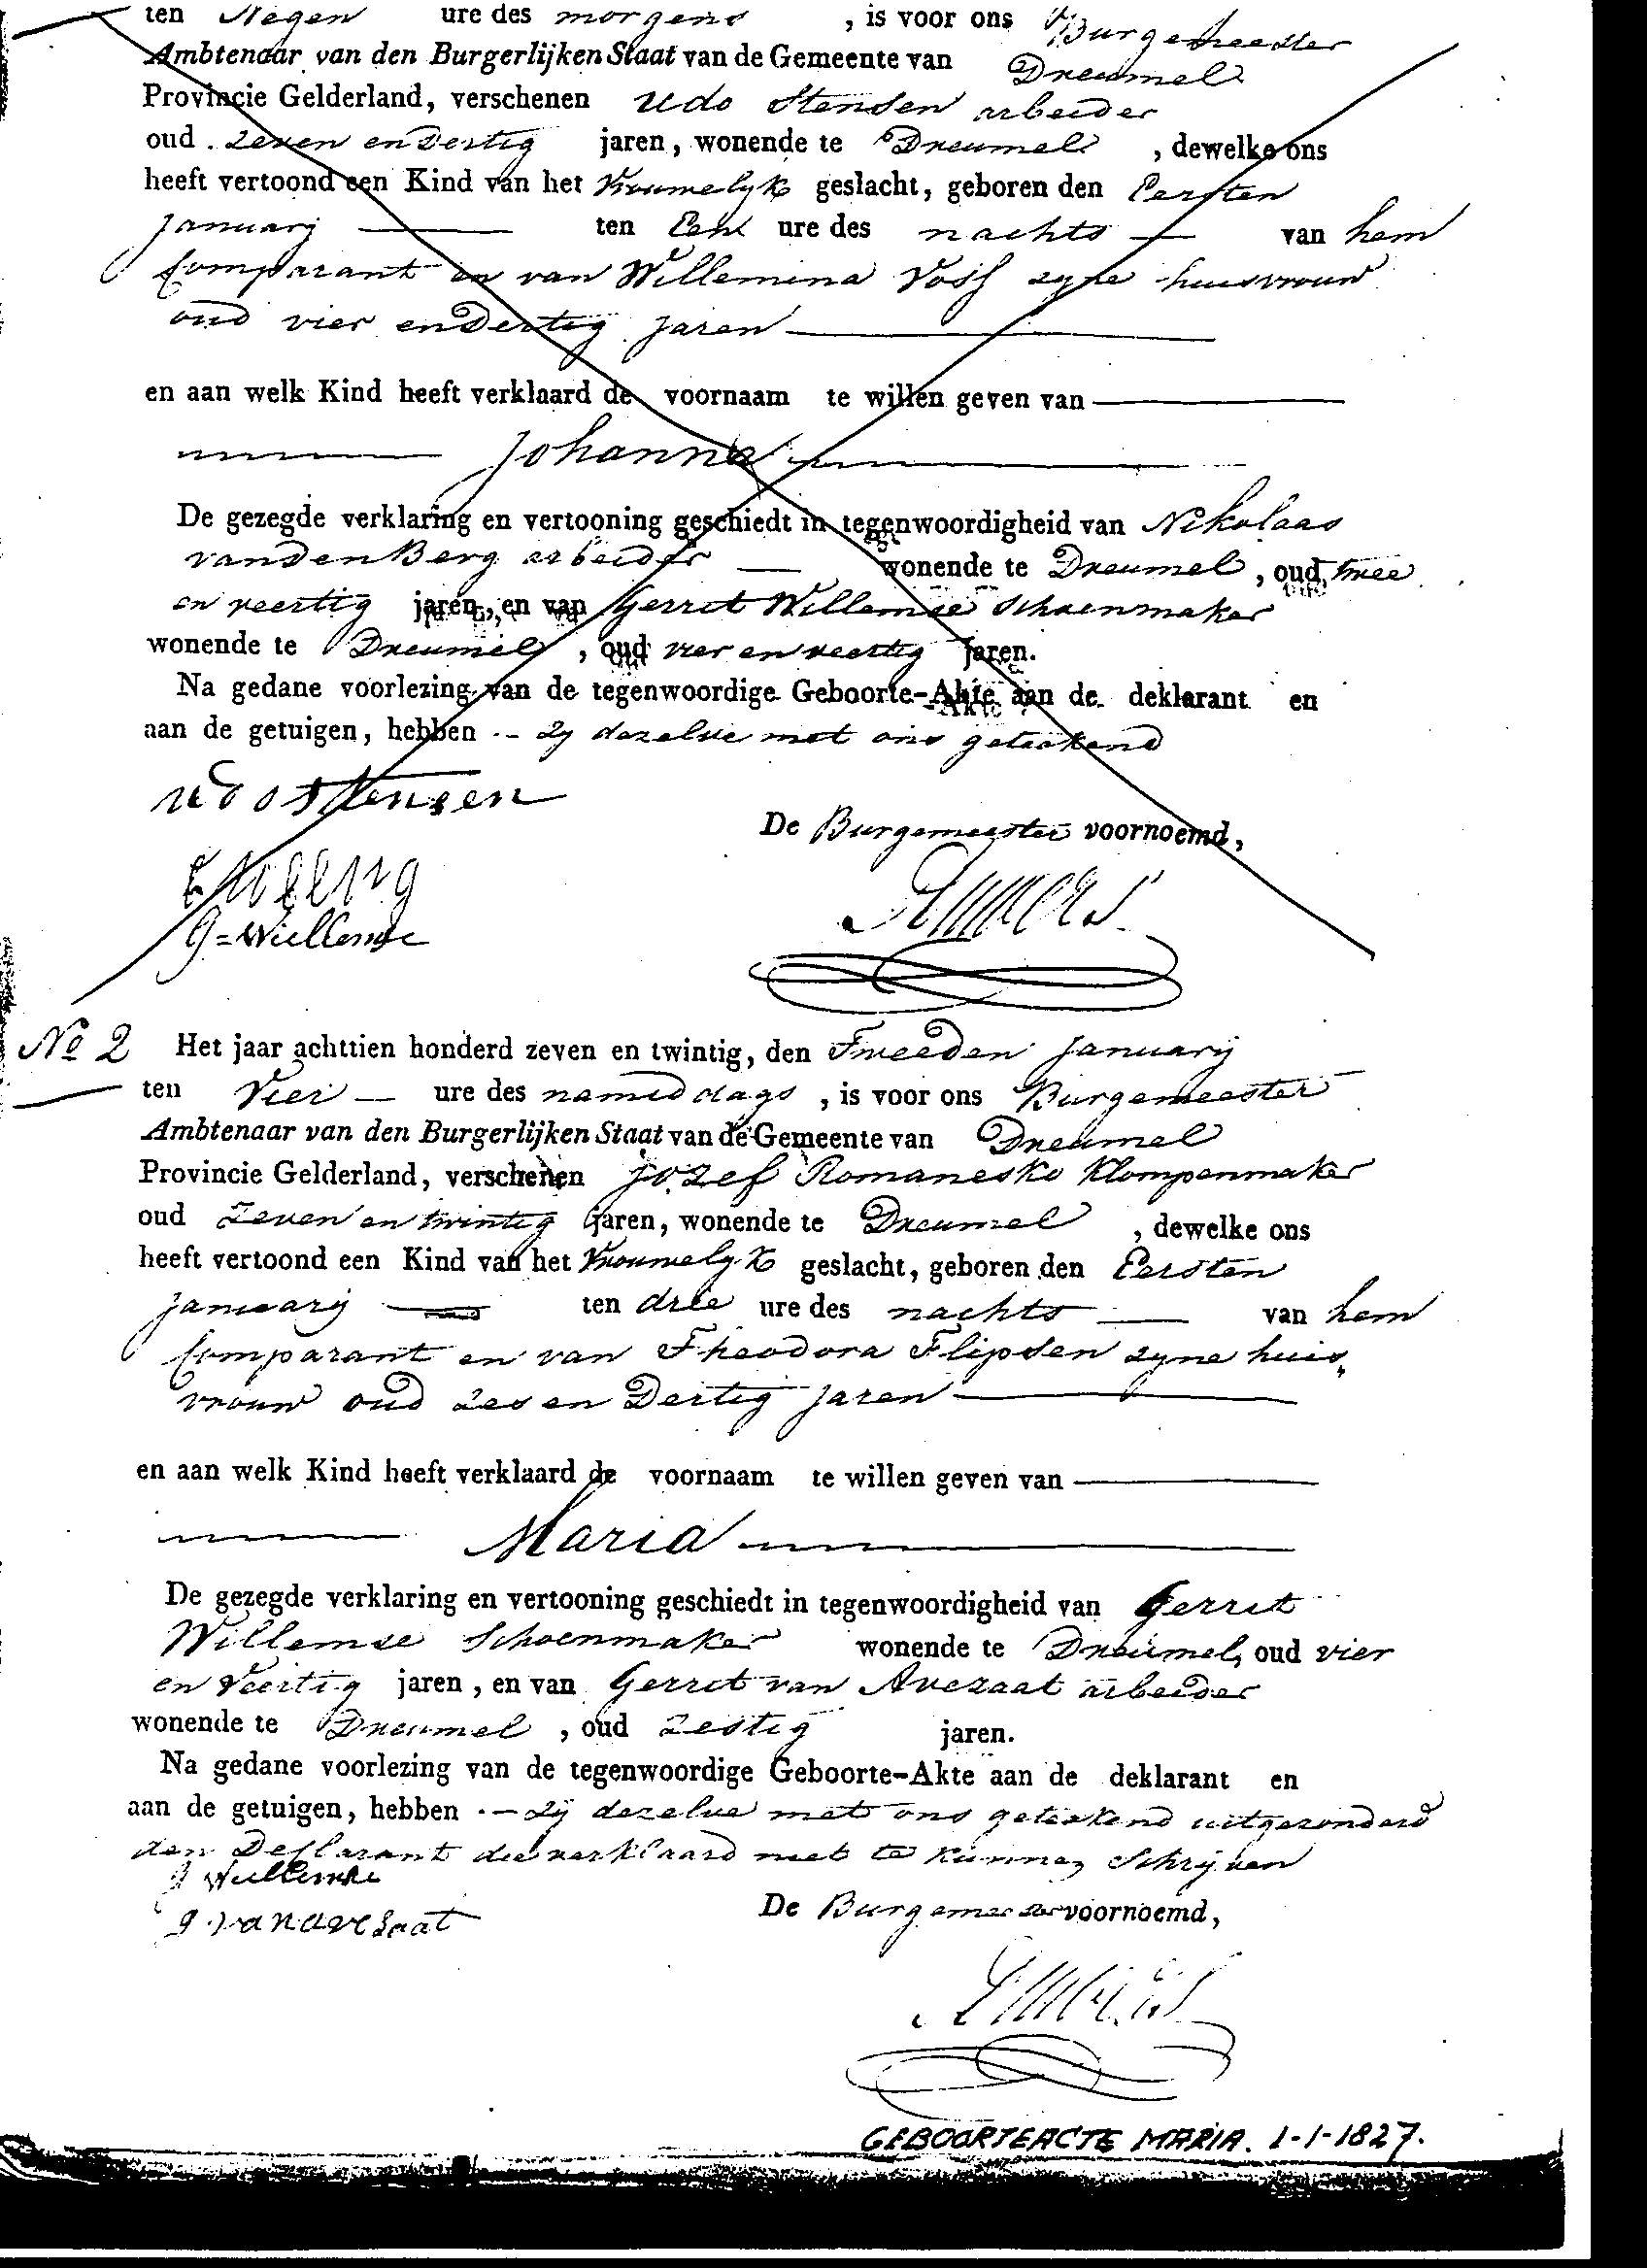 ten Negen ure des morgens , is voor ons Burgemeester
Ambtenaar van den Burgerlijken Staat van de Gemeente van Dreumel
Provincie Gelderland, verschenen Udo Stensen arbeider
oud zeven en Dertig jaren, wonende te Dreumel , dewelke ons
heeft vertoond een Kind van het Vrouwelyk geslacht, geboren den Eersten
Januarij ten Een ure des nachts van hem
Comparant en van Willemina Voss zyne huisvrouw
oud vier en Dertig jaren
en aan welk Kind heeft verklaard de voornaam te willen geven van
Johanna
De gezegde verklaring en vertooning geschiedt in tegenwoordigheid van Nikolaas
van den Berg arbeider wonende te Dreumel , oud twee
en veertig jaren, en van Gerret Willemse Schoenmaker
wonende te Dreumel , oud vier en veertig jaren.
Na gedane voorlezing van de tegenwoordige Geboorte-Akte aan de deklarant en
aan de getuigen, hebben zy dezelve met ons geteekend
Udo Stensen
De Burgemeester voornoemd,
G=Willemse
No 2 Het jaar achttien honderd zeven en twintig, den Tweeden Januarij
ten Vier ure des namiddags , is voor ons Burgemeester
Ambtenaar van den Burgerlijken Staat van de Gemeente van Dreumel
Provincie Gelderland, verschenen Jozef Romanesko Klompenmaker
oud Zeven en twintig jaren, wonende te Dreumel , dewelke ons
heeft vertoond een Kind van het Vrouwelyk geslacht, geboren den Eersten
Januarij ten drie ure des nachts van hem
Comparant en van Theodora Flipsen zyne huis
vrouw oud zes en Dertig jaren
en aan welk Kind heeft verklaard de voornaam te willen geven van
Maria
De gezegde verklaring en vertooning geschiedt in tegenwoordigheid van Gerret
Willemse Schoenmaker wonende te Dreumel, oud vier
en Veertig jaren, en van Gerret van Avezaat arbeider
wonende te Dreumel , oud Zestig jaren.
Na gedane voorlezing van de tegenwoordige Geboorte-Akte aan de deklarant en
aan de getuigen, hebben zij dezelve met ons geteekend uitgezonderd
den Deklarant die verklaard niet te kunnen Schrijven
G Willemse
De Burgemeester voornoemd,
g. van avesaat
GEBOORTEACTE MARIA. 1-1-1827.